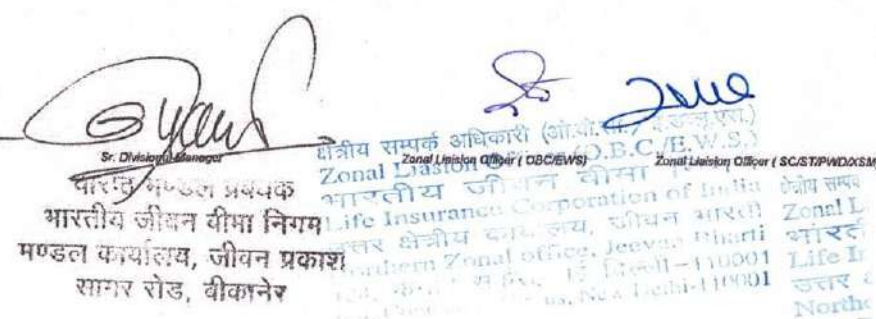 Sr. Divisional Manager
वरिष्ठ मण्डल प्रबंधक
भारतीय जीवन बीमा निगम
मण्डल कार्यालय, जीवन प्रकाश
सागर रोड, बीकानेर
Zonal Liaision Officer ( OBC/EWS)
क्षेत्रीय सम्पर्क अधिकारी (ओ.बी.सी./
Zonal Liaison (O.B.C./E.W.S.)
भारतीय जीवन बीमा
Life Insurance Corporation of India
उत्तर क्षेत्रीय कार्यालय, जीवन भारती
Northern Zonal office, Jeevan Bharti
-110001
New Delhi-110001
Zonal Liaision Officer ( SC/ST/PWD/XSM
क्षेत्रीय सम्पर्क
Zonal L
भारती
Life In
उत्तर
Northe